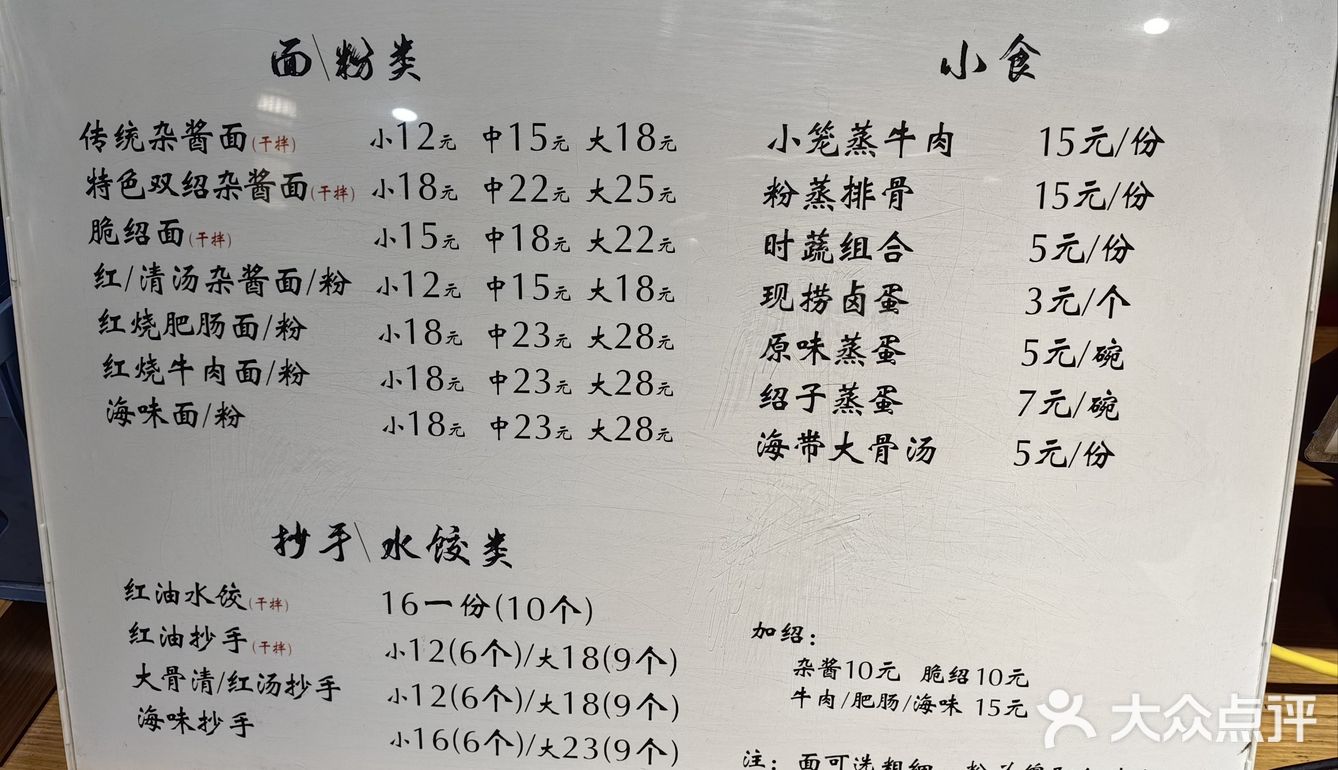 面\粉类
传统杂酱面(干拌) 小12元 中15元 大18元
特色双绍杂酱面(干拌) 小18元 中22元 大25元
脆绍面(干拌) 小15元 中18元 大22元
红/清汤杂酱面/粉 小12元 中15元 大18元
红烧肥肠面/粉 小18元 中23元 大28元
红烧牛肉面/粉 小18元 中23元 大28元
海味面/粉 小18元 中23元 大28元
小食
小笼蒸牛肉 15元/份
粉蒸排骨 15元/份
时蔬组合 5元/份
现捞卤蛋 3元/个
原味蒸蛋 5元/碗
绍子蒸蛋 7元/碗
海带大骨汤 5元/份
抄手\水饺类
红油水饺(干拌) 16一份(10个)
红油抄手(干拌) 小12(6个)/大18(9个)
大骨清/红汤抄手 小12(6个)/大18(9个)
海味抄手 小16(6个)/大23(9个)
加绍：
杂酱10元 脆绍10元
牛肉/肥肠/海味 15元
注：面可选粗细
大众点评